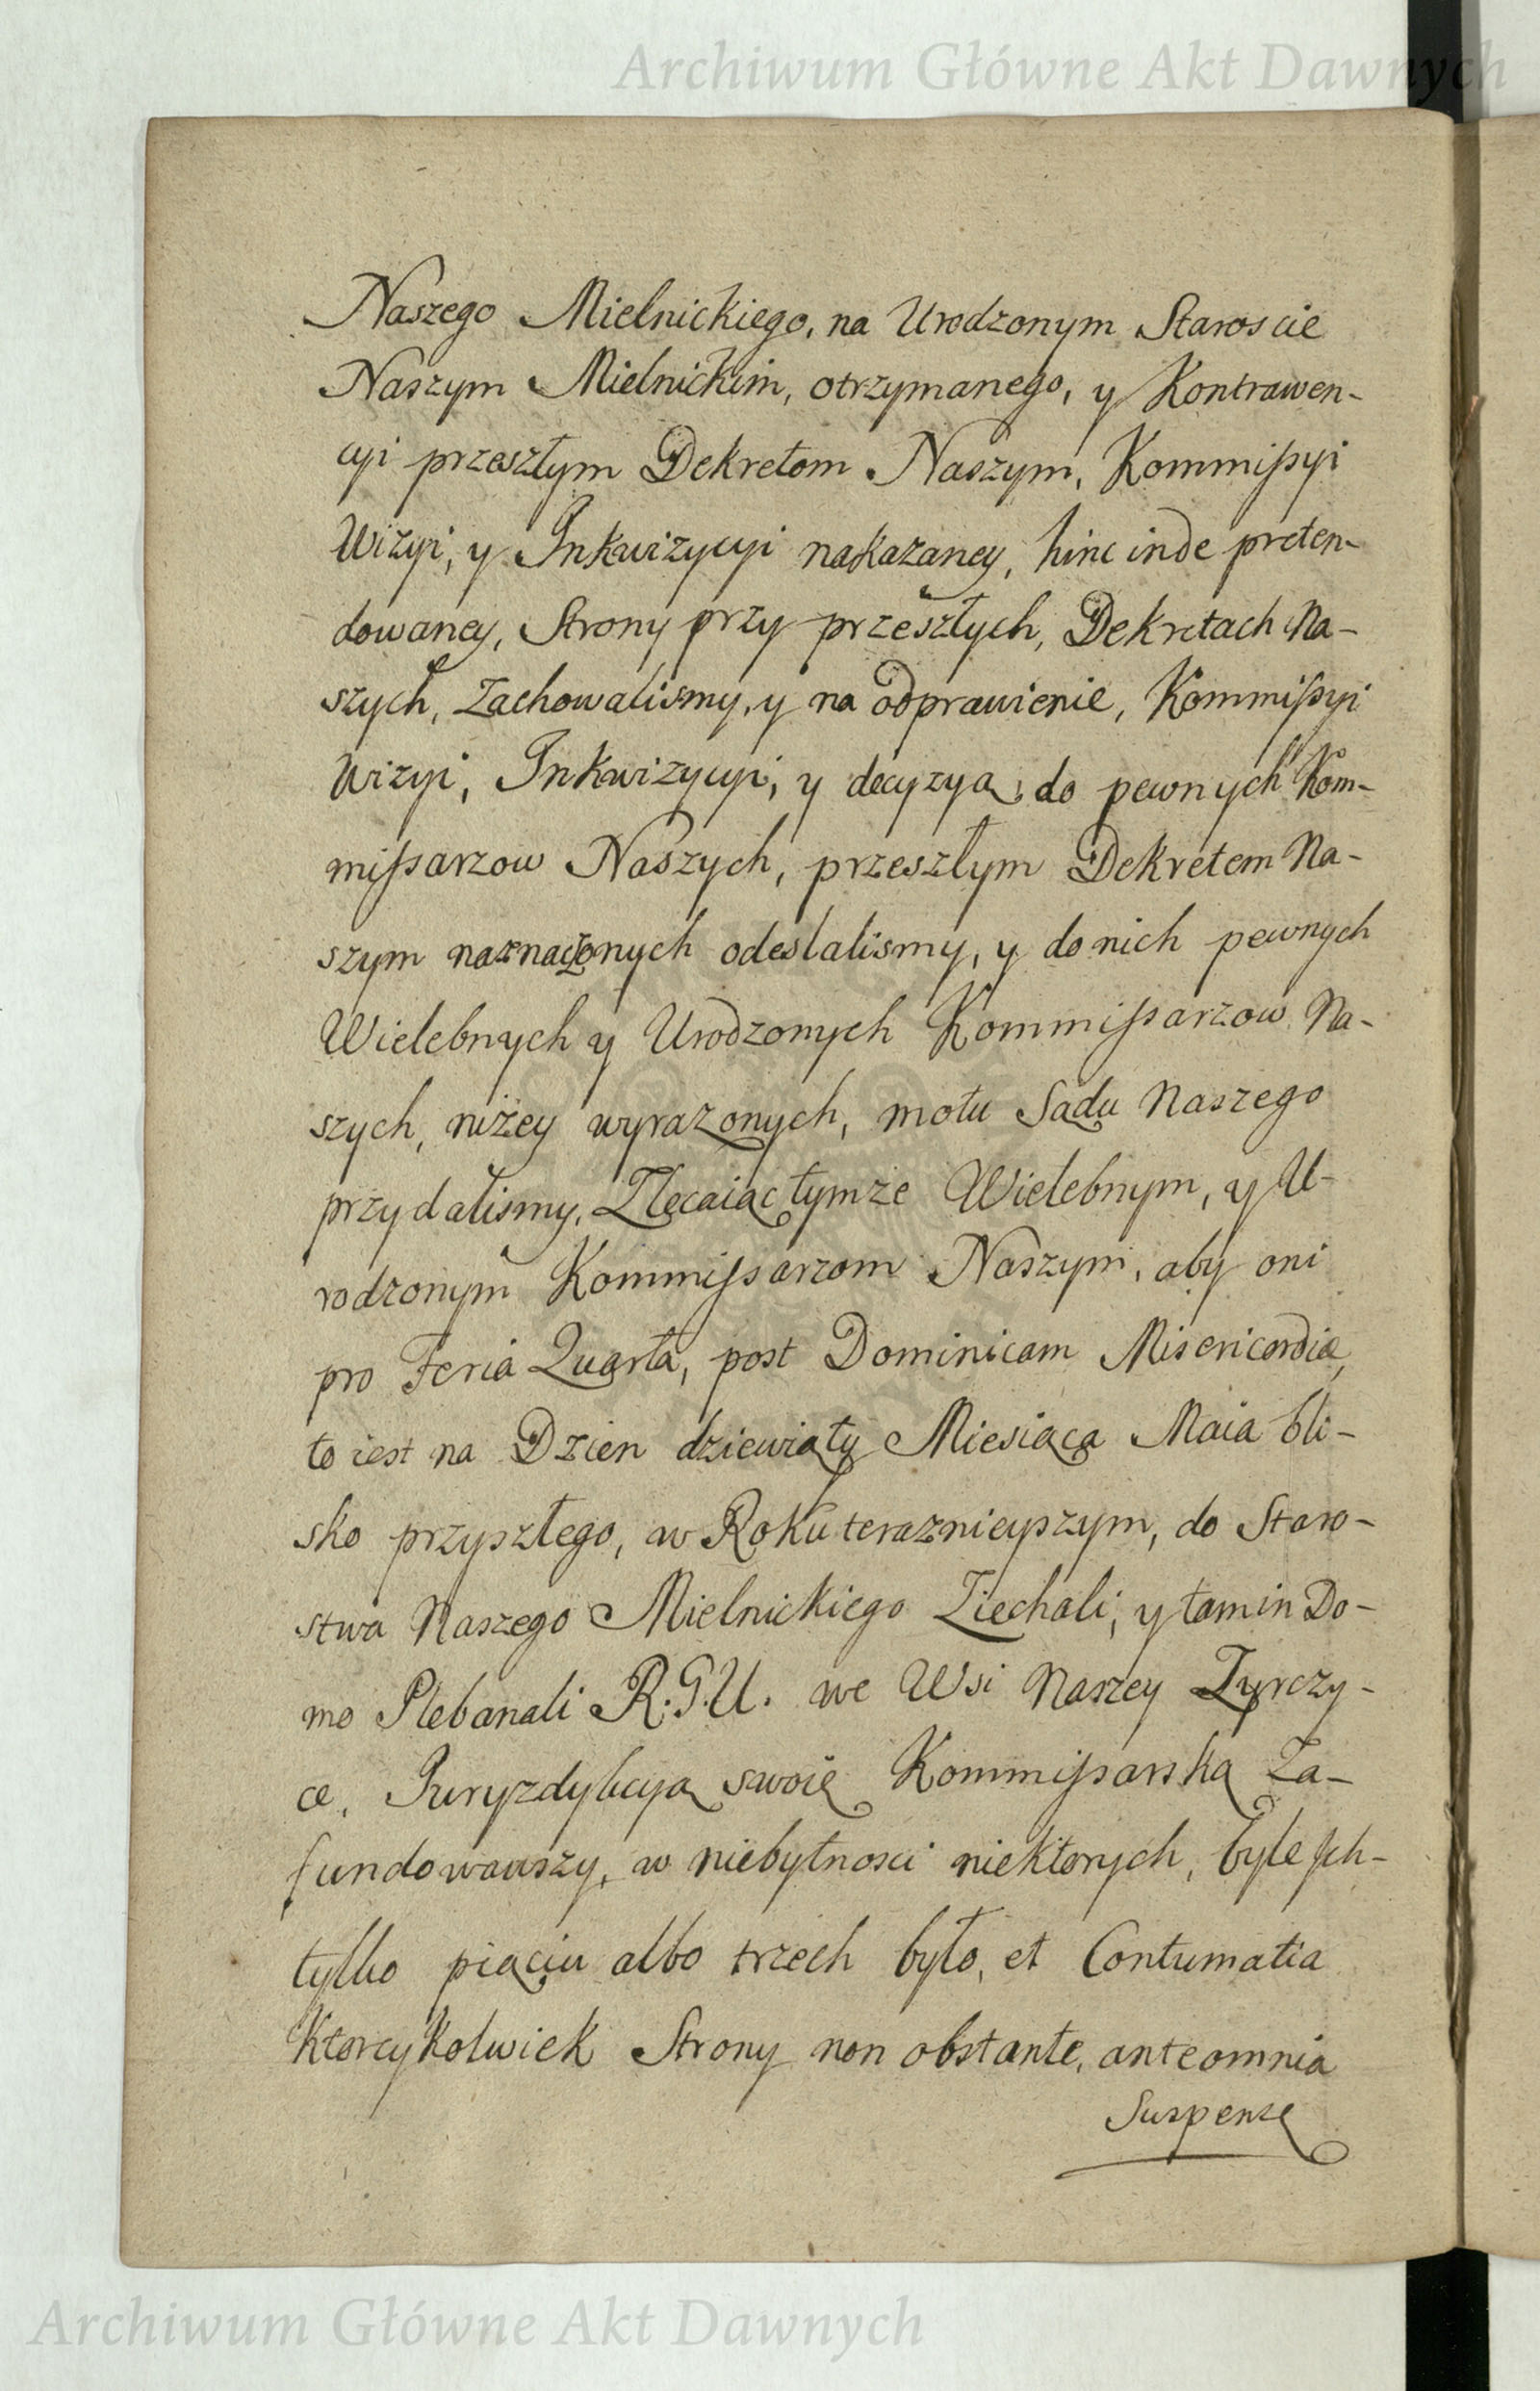 Archiwum Główne Akt Dawnych
Naszego Mielnickiego, na Urodzonym Staroscie
Naszym Mielnickim, otrzymanego, y Kontrawen-
cyi przeszłym Dekretom Naszym, Kommißyi
Wizyi, y Inkwizycyi nakazaney, hinc inde preten-
dowaney, Strony przy przeszłych, Dekretach Na-
szych, Zachowalismy, y na odprawienie, Kommißyi
Wizyi, Inkwizycyi, y decyzyą, do pewnych Kom-
mißarzow Naszych, przeszłym Dekretem Na-
szym naznaczonych odeslalismy, y do nich pewnych
Wielebnych y Urodzonych Kommißarzow Na-
szych, niżey wyrazonych, motu Sądu Naszego
przydalismy, Zlecaiąc tymże Wielebnym, y U-
rodzonym Kommißarzom Naszym, aby oni
pro Feria Quarta, post Dominicam Misericordiæ,
to iest na Dzien dziewiąty Miesiąca Maia bli-
sko przyszłego, w Roku teraznieyszym, do Staro-
stwa Naszego Mielnickiego Ziechali, y tam in Do-
mo Plebanali R. G. U. we Wsi Naszey Zyrczy-
ce, Juryzdykcyą swoię Kommißarską Za-
fundowawszy, w niebytnosci niektorych, byle Jch-
tylko pięciu albo trzech było, et Contumatia
Ktoreykolwiek Strony non obstante, ante omnia
Suspensę
Archiwum Główne Akt Dawnych